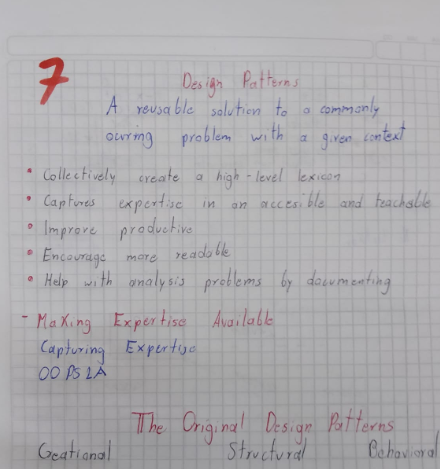 7
Design Patterns
A reusable solution to a commonly
ocuring problem with a given context
• Collectively create a high-level lexicon
• Captures expertise in an accesible and teachable
• Improve productive
• Encourage more readable
• Help with analysis problems by documenting
- Making Expertise Available
Capturing Expertise
The Original Design Patterns
Creational Structural Behavioral